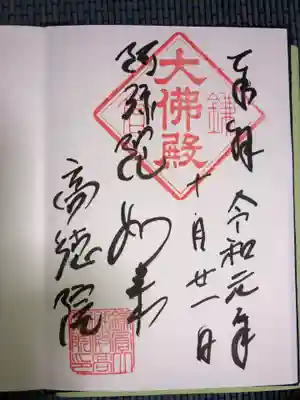 奉拝 令和元年
十月廿一日
大佛殿
鎌倉
阿弥陀如来
高徳院